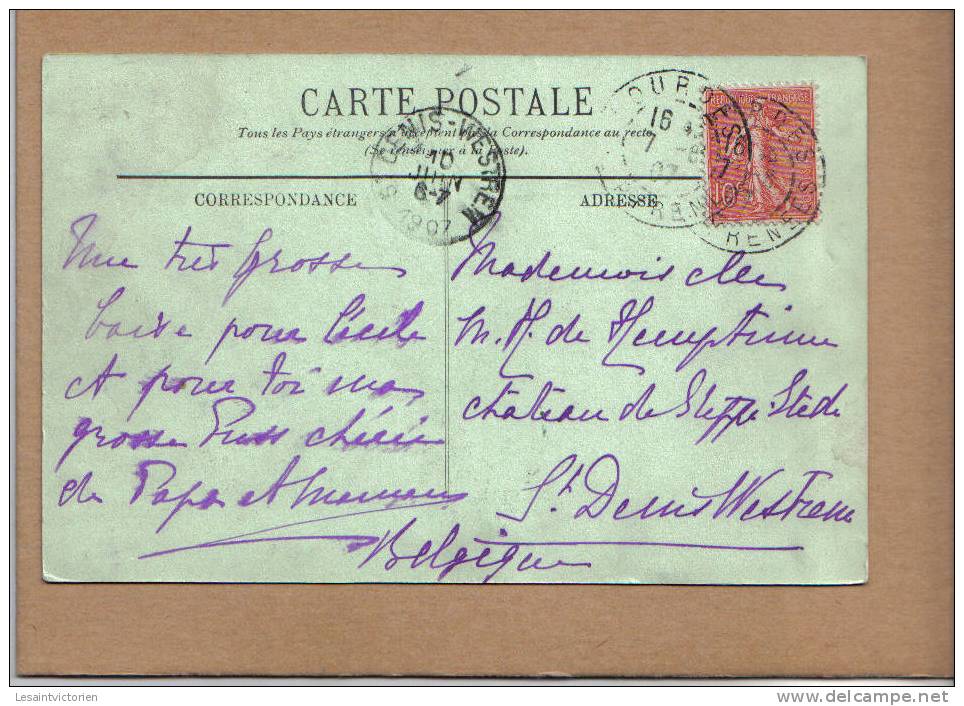 CARTE POSTALE
Tous les Pays étrangers n'acceptent pas la Correspondance au recto.
(Se renseigner à la Poste).
CORRESPONDANCE
ADRESSE
REPUBLIQUE FRANÇAISE
10
ST DENIS-WESTREM
10
JUIN
6-7
1907
16
7
Une très grosse
baise pour Cécile
et pour toi ma
grosse Puss chérie
de Papa et Maman
Mademoiselle
M. H. de Hemptinne
château de Sleppe Stede
St Denis Westrem
Belgique
Lesaintvictorien
www.delcampe.net